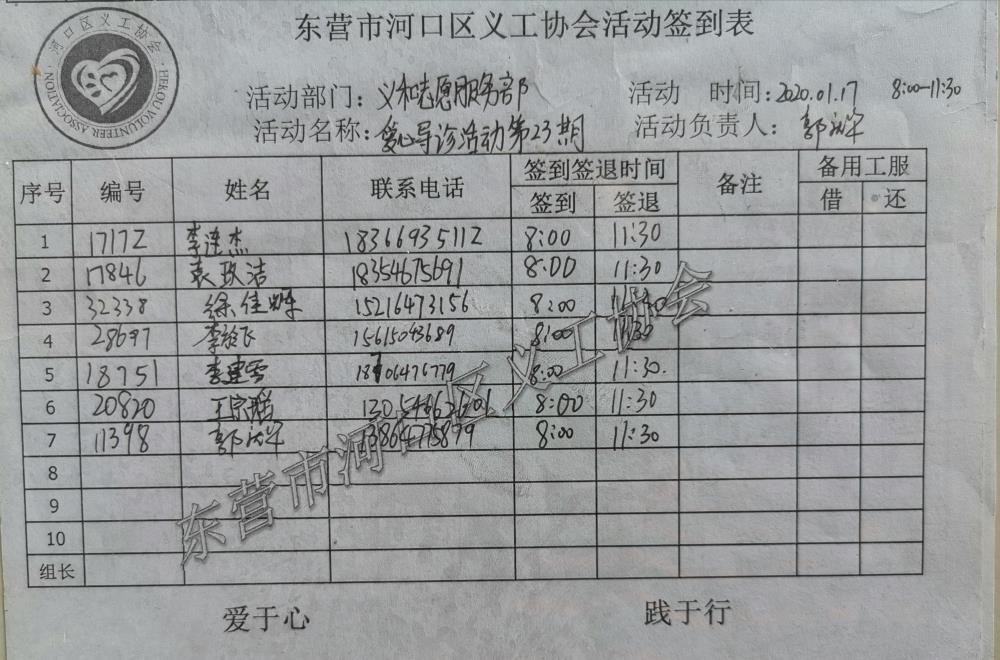 东营市河口区义工协会活动签到表
河口区义工协会
HEKOU VOLUNTEER ASSOCIATION
活动部门：义和志愿服务部 活动 时间：2020.01.17 8:00-11:30
活动名称：爱心导诊活动第23期 活动负责人：郭
序号 编号 姓名 联系电话 签到签退时间 备注 备用工服
签到 签退 借 还
1 17172 李连杰 18366935112 8:00 11:30
2 17846 袁玖洁 18354675691 8:00 11:30
3 32338 徐佳 15216473156 8:00 11:30
4 28697 李 飞 15615043689 8:00 11:30
5 18751 李建雪 18106476779 8:00 11:30.
6 20820 王宗 8:00 11:30
7 11398 郭 13864775899 8:00 11:30
8
9
10
组长
爱于心 践于行
东营市河口区义工协会